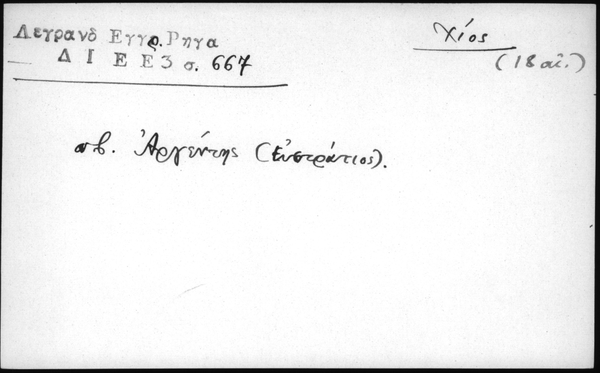 Λεγρανδ Εγγρ. Ρηγα
Δ Ι Ε Ε 3 σ. 667
Χίος
(18 αἰ.)
πβ. Ἀργέντης (Εὐστράτιος).